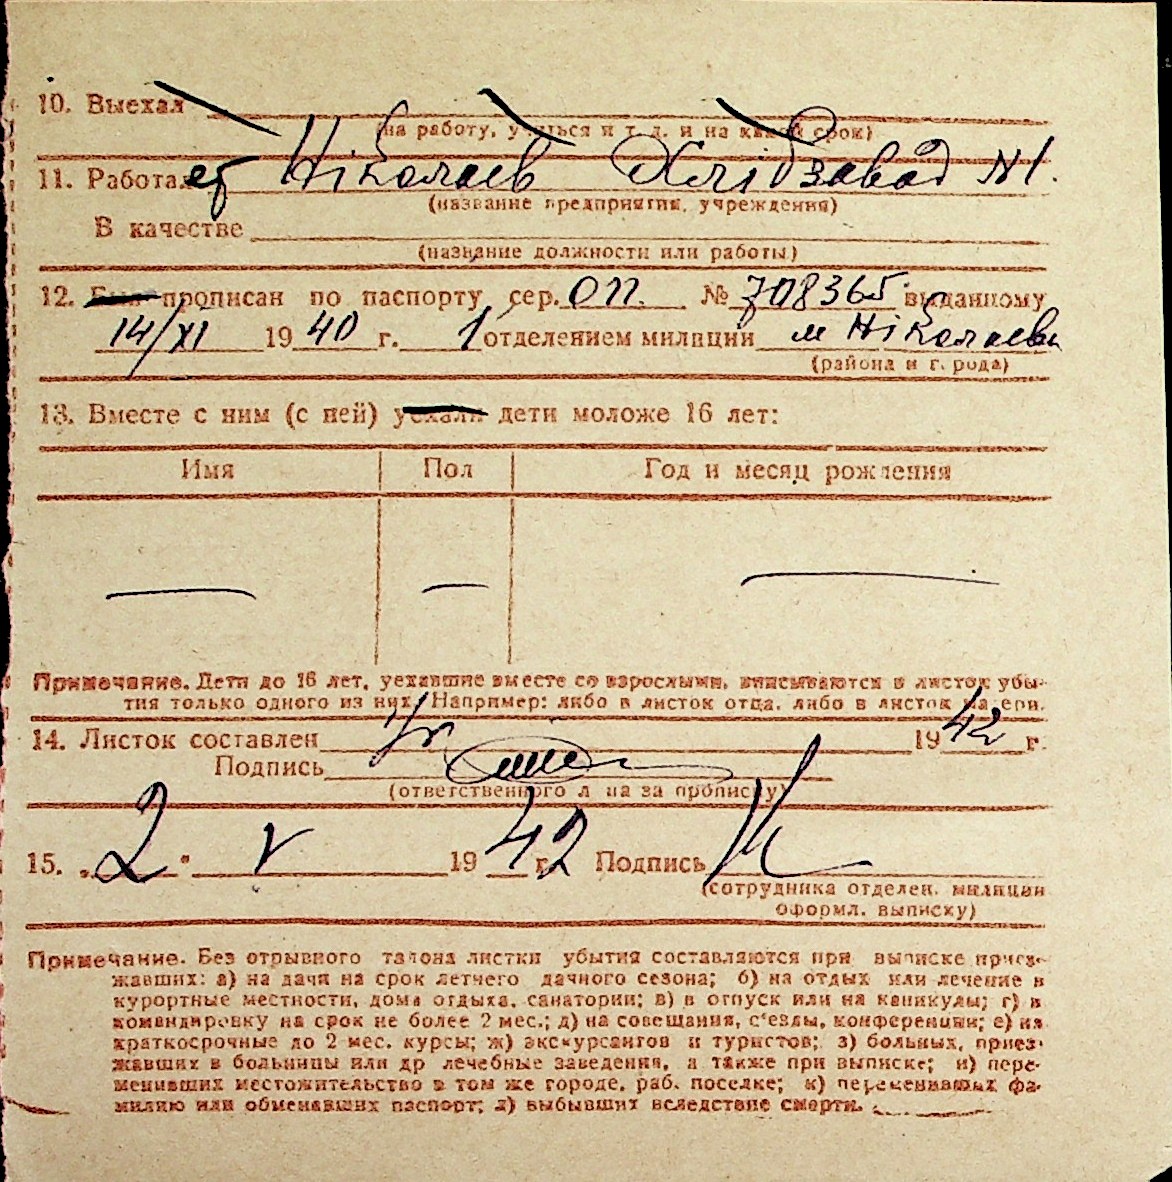 10. Выехал
(на работу, учиться и т. д. и на какой срок)
11. Работает Ніколаев Хлібзавод №1.
(название предприятия, учреждения)
В качестве
(название должности или работы)
12. Был прописан по паспорту сер. ОП. № 708365 выданному
14/XI 1940 г. 1 отделением милиции м Ніколаева
(района и города)
13. Вместе с ним (с ней) уехали дети моложе 16 лет:
Имя Пол Год и месяц рождения
— — —
Примечание. Дети до 16 лет, уехавшие вместе со взрослыми, вписываются в листок убы-
тия только одного из них. Например: либо в листок отца, либо в листок матери.
14. Листок составлен 1942 г.
Подпись
(ответственного лица за прописку)
15. „2" V 1942 г. Подпись
(сотрудника отделен. милиции
оформл. выписку)
Примечание. Без отрывного талона листки убытия составляются при выписке приез-
жавших: а) на дачи на срок летнего дачного сезона; б) на отдых или лечение в
курортные местности, дома отдыха, санатории; в) в отпуск или на каникулы; г) в
командировку на срок не более 2 мес.; д) на совещания, с'езды, конференции; е) на
краткосрочные до 2 мес. курсы; ж) экскурсантов и туристов; з) больных, приез-
жавших в больницы или др лечебные заведения, а также при выписке; и) пере-
менивших местожительство в том же городе, раб. поселке; к) переменивших фа-
милию или обменавших паспорт; л) выбывших вследствие смерти.